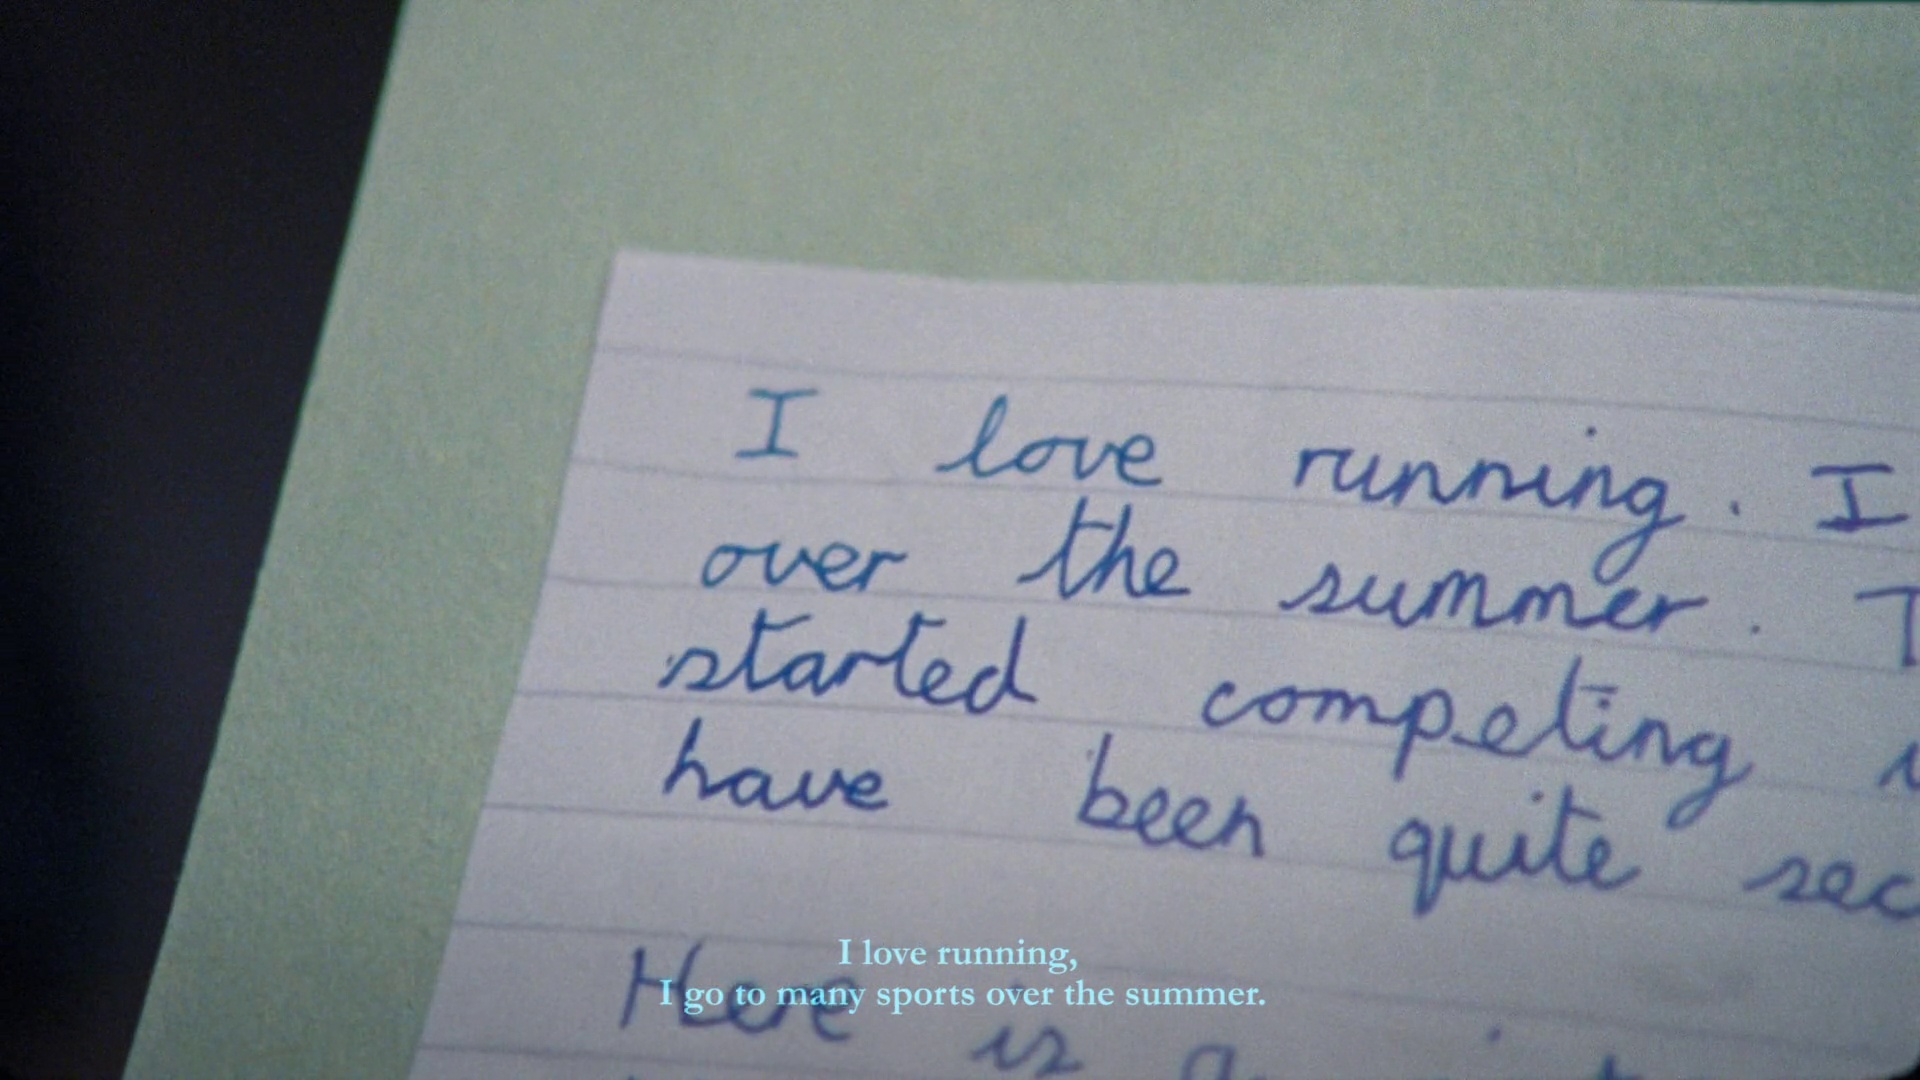 I love running. I
over the summer.
started competing
have been quite
Here is a
I love running,
I go to many sports over the summer.